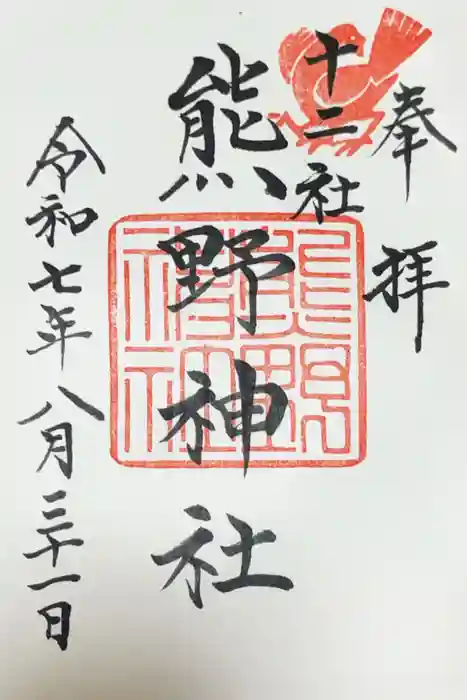 奉拝
十二社
熊野神社
令和七年八月三十一日
熊野神社